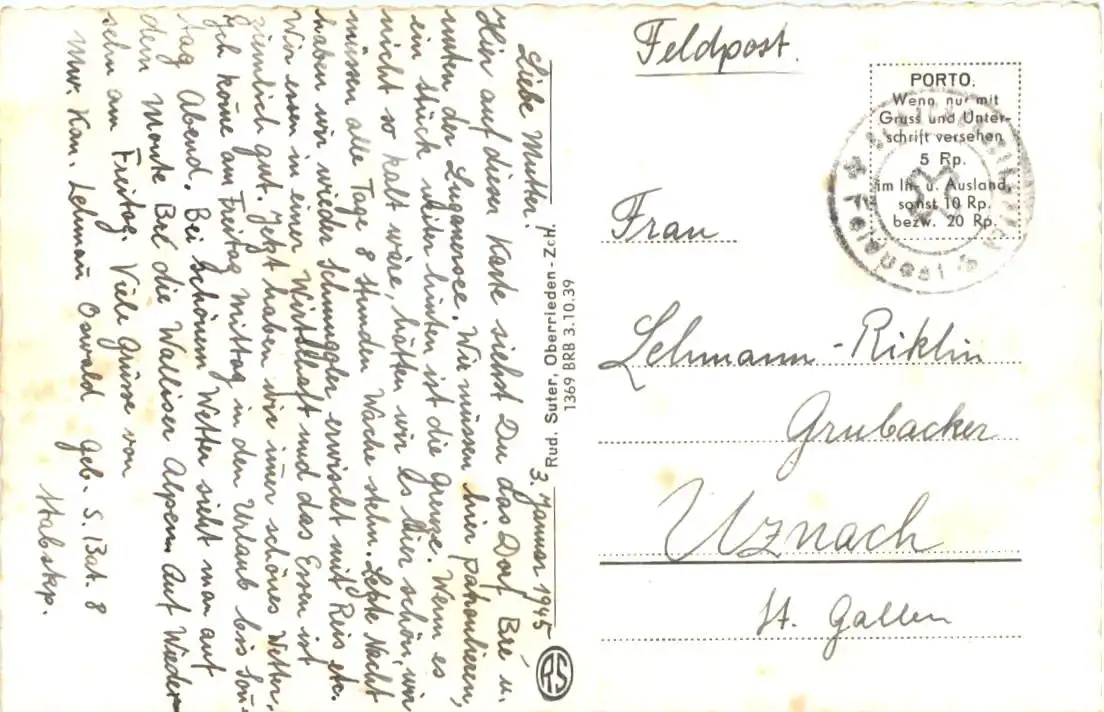 3. Januar 1945
Liebe Mutter!
Hier auf dieser Karte siehst Du das Dorf Bré u.
unten der Luganersee. Wir müssen hier patroulieren,
ein Stück weiter hinten ist die Grenze. Wenn es
nicht so kalt wäre, hätten wir es hier schön, wir
müssen alle Tage 8 Stunden Wache stehn. Letzte Nacht
haben wir wieder Schmuggler erwischt mit Reis etc.
Wir essen in einer Wirtschaft und das Essen ist
ziemlich gut. Jetzt haben wir imer schönes Wetter.
Ich kome am Freitag Mittag in den Urlaub bis Son-
tag Abend. Bei schönem Wetter sieht man auf
dem Monte Bré die Walliser Alpen. Auf Wieder-
sehn am Freitag. Viele Grüsse von
Mw. Kan. Lehman Oswald Geb. S. Bat. 8
Stabskp.
Rud. Suter, Oberrieden-Zch.
1369 BRB 3.10.39
RS
Feldpost.
PORTO.
Wenn nur mit
Gruss und Unter-
schrift versehen
5 Rp.
im In- u. Ausland,
sonst 10 Rp.
bezw. 20 Rp.
Feldpost
Frau
Lehmann-Riklin
Grubacker
Uznach
St. Gallen